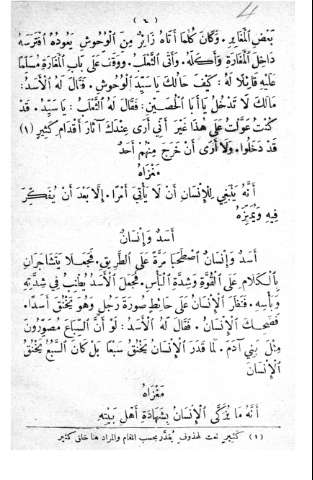 (٦)
بَعْضِ الْمَغَايِرِ. وَكَانَ كُلَّمَا أَتَاهُ زَائِرٌ مِنَ الْوُحُوشِ يَعُودُهُ افْتَرَسَهُ
دَاخِلَ الْمَغَارَةِ وَأَكَلَهُ. وَأَتَى الثَّعْلَبُ. وَوَقَفَ عَلَى بَابِ الْمَغَارَةِ مُسَلِّمًا
عَلَيْهِ قَائِلًا لَهُ: كَيْفَ حَالُكَ يَا سَيِّدَ الْوُحُوشِ. فَقَالَ لَهُ الْأَسَدُ:
مَالَكَ لَا تَدْخُلُ يَا أَبَا الْحُصَيْنِ. فَقَالَ لَهُ الثَّعْلَبُ: يَا سَيِّدُ. قَدْ
كُنْتُ عَوَّلْتُ عَلَى هٰذَا غَيْرَ أَنِّي أَرَى عِنْدَكَ آثَارَ أَقْدَامِ كَثِيرٍ (١)
قَدْ دَخَلُوا. وَلَا أَرَى أَنْ خَرَجَ مِنْهُمْ أَحَدٌ
مَغْزَاهُ
أَنَّهُ يَنْبَغِي لِلْإِنْسَانِ أَنْ لَا يَأْتِيَ أَمْرًا. إِلَّا بَعْدَ أَنْ يُفَكِّرَ
فِيهِ وَيُمَيِّزَهُ
أَسَدٌ وَإِنْسَانٌ
أَسَدٌ وَإِنْسَانٌ اصْطَحَبَا مَرَّةً عَلَى الطَّرِيقِ. فَجَعَلَا يَتَشَاجَرَانِ
بِالْكَلَامِ عَلَى الْقُوَّةِ وَشِدَّةِ الْبَأْسِ. فَجَعَلَ الْأَسَدُ يُطْنِبُ فِي شِدَّتِهِ
وَبَأْسِهِ. فَنَظَرَ الْإِنْسَانُ عَلَى حَائِطٍ صُورَةَ رَجُلٍ وَهُوَ يَخْنُقُ أَسَدًا.
فَضَحِكَ الْإِنْسَانُ. فَقَالَ لَهُ الْأَسَدُ: لَوْ أَنَّ السِّبَاعَ مُصَوِّرُونَ
مِثْلَ بَنِي آدَمَ. لَمَا قَدَرَ الْإِنْسَانُ يَخْنُقُ سَبُعًا بَلْ كَانَ السَّبُعُ يَخْنُقُ
الْإِنْسَانَ
مَغْزَاهُ
أَنَّهُ مَا يُزَكَّى الْإِنْسَانُ بِشَهَادَةِ أَهْلِ بَيْتِهِ
(١) كثير نعت لمحذوف يُقدَّر بحسب المقام والمراد هنا خلق كثير